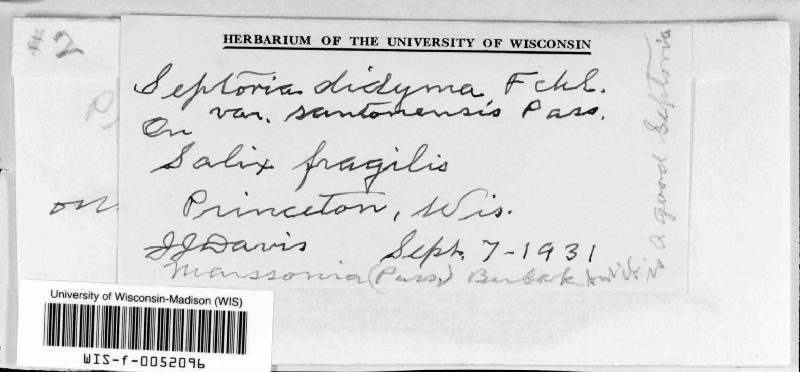 #2
HERBARIUM OF THE UNIVERSITY OF WISCONSIN
Septoria didyma Fckl.
var. santonensis Pass.
On
Salix fragilis
Princeton, Wis.
JJDavis Sept. 7-1931
Marssonia (Pass.) Bubak but it is a good Septoria
on
University of Wisconsin-Madison (WIS)
WIS-f-0052096